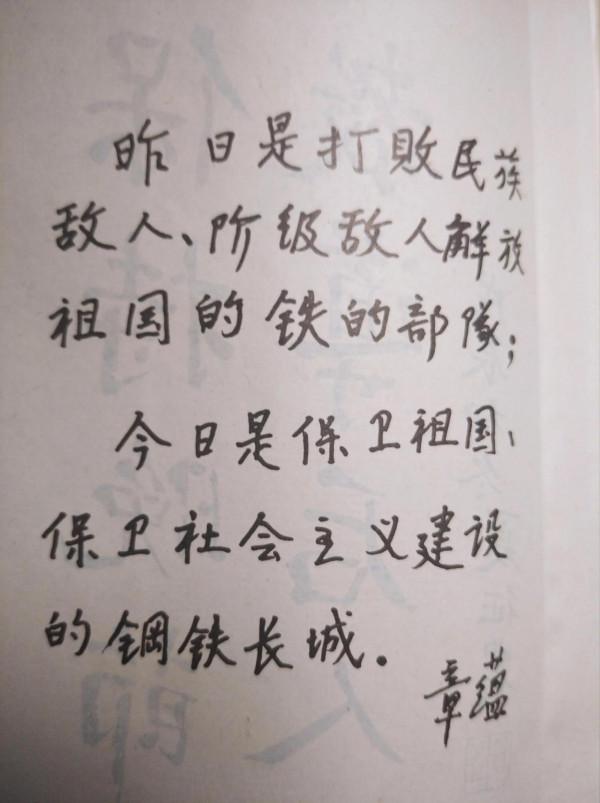 昨日是打敗民族
敌人、阶级敌人解放
祖国的铁的部隊；
今日是保卫祖国、
保卫社会主义建设
的鋼铁长城。
章蕴